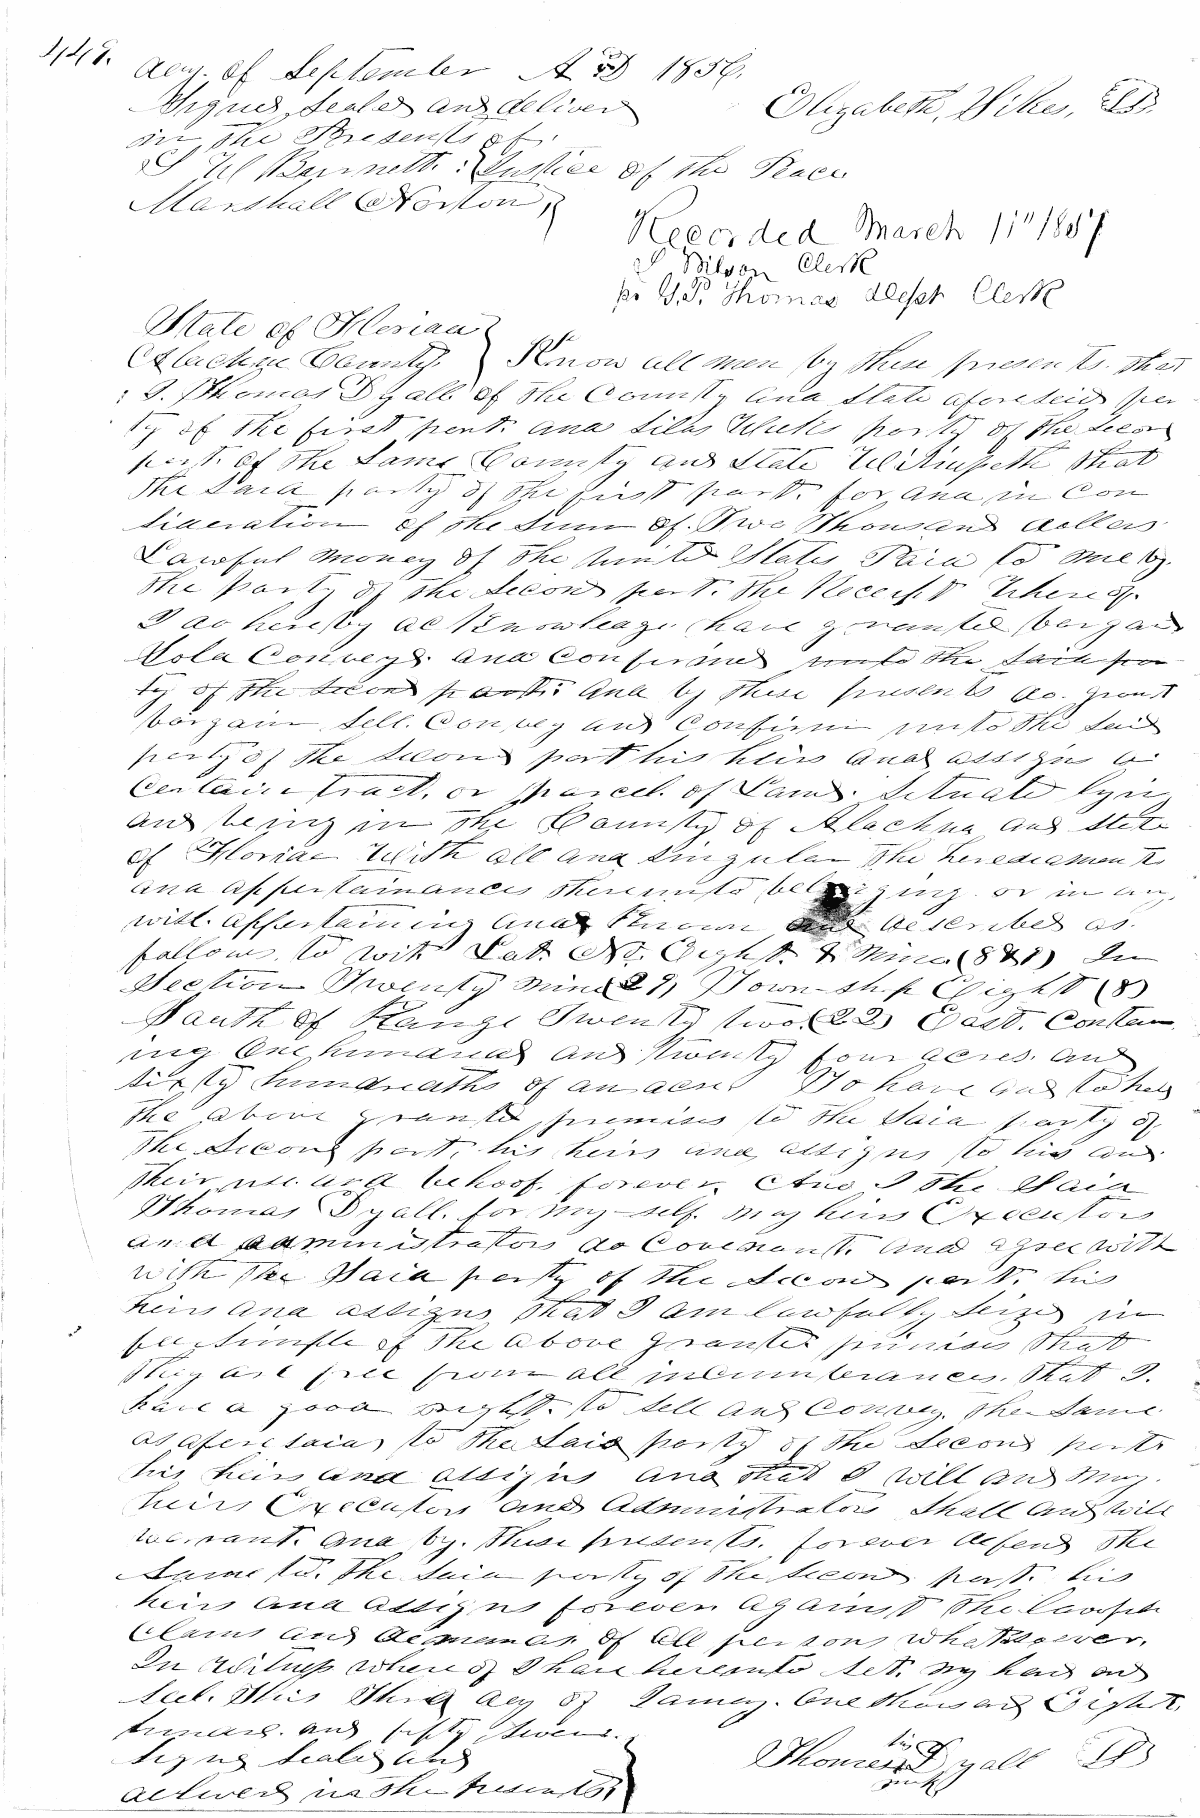 448.
day. of September A D 1856.
Signed, Sealed and deliver
Elizabeth, Sikes, LS.
in the Presents of.
S W Barnett. Justice of the Peace
Marshall Norton,
Recorded March 11" 1857
S Bilson Clerk
pr J.P. Thomas Dept Clerk
State of Florida
Alachua County. Know all men by these presents. that
I. Thomas Dyall of the County and State aforesaid par
ty of the first part. and Silas Weeks party of the Secon
part. of the Same County and State Witnesseth that
the Said party of the first part. for and in Con
sideration of the Sum of. Two Thousand dollers
Lawful money of the Unite States Paid to me by.
the Party of the Second part. the Receipt Whereof.
I do hereby acknowledge have granted bargand
Sold Conveyd. and Confirmed unto the Said par
ty of the Second part: and by these presents do. grant
bargain. Sell. Convey and Confirm unto the Said
party of the Second part his heirs and assigns a
Certain tract. or parcel. of Land. Situate lyin
and being in the County of Alachua and State
of Florida With all and Singular the herediaments
and appertainances thereunto belonging. or in any.
wise. appertaining and Known and described as.
follows. to wit Lot. No. Eight. & Nine (8&9) In
Section Twenty nine (29) Town-ship Eight (8)
South of Range Twenty two. (22) East. Contain
ing One hundred and twenty four acres. and
sixty hundreaths of an acre. To have and to hold
the above granted premises to the Said party of
the Second part, his heirs and assigns to his and
their use and behoof. forever. And I the Said
Thomas Dyall. for my-self. my heirs Executors
and administrators do Covenant. and agree with
with the Said party of the Second part. his
heirs and assigns that I am lawfully Seized in
fee Simple of the above granted primises that
they are free from all incumberances. that I.
have a good right. to Sell and Convey. the Same
as afore said, to the Said party of the Second part
his heirs and assigns and that I will and my.
heirs Executors and Administrators Shall and will
warrant. and by. these presents. forever defend the
Same to. the Said party of the Second part. his
heirs and assigns forever against the lawful
Claims and demands. of all persons whatsoever.
In Witness whereof I have hereunto Set. my hand and
Seal. this Third day of January. One thousand Eight.
hundred. and fifty Seven.
Signd Sealed and
Thomas his Dyall LS
mark
delivered in the presents,